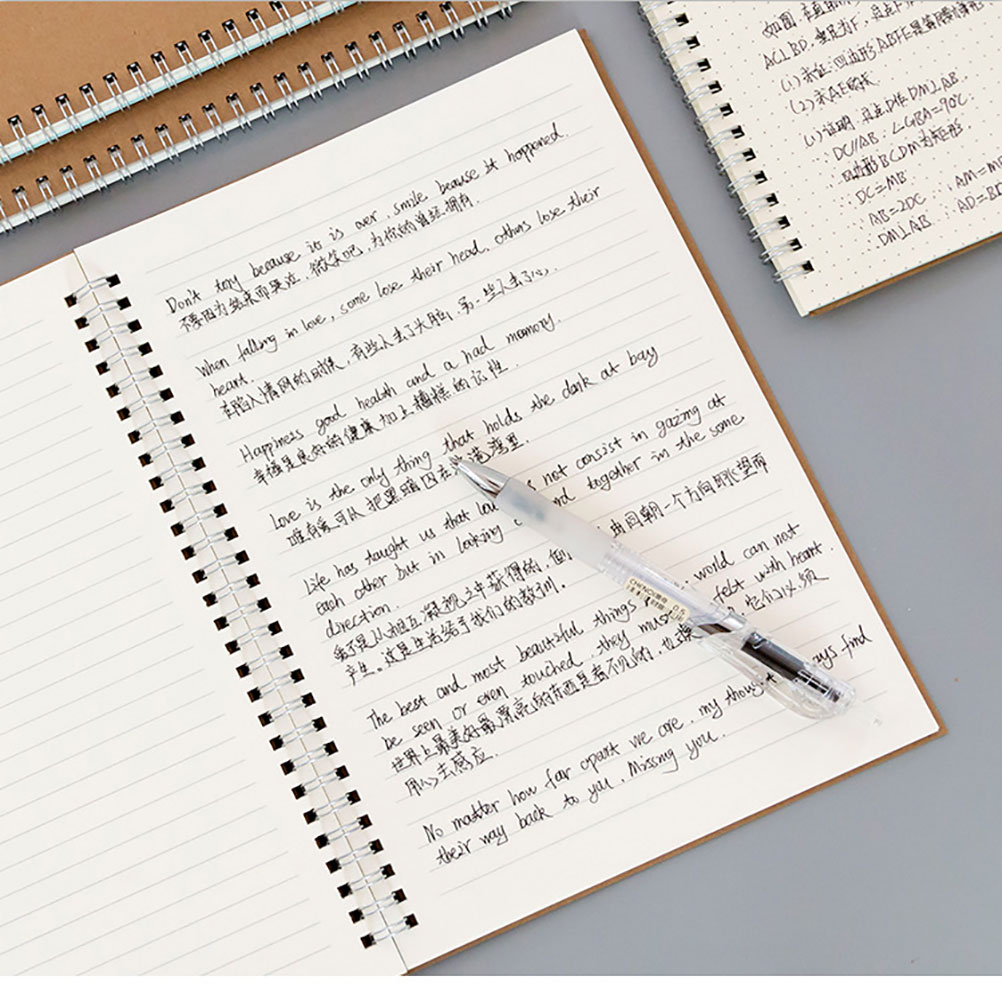 Don't tory because it is over, smile because it happened.
不要因为结束而哭泣,微笑吧,为你的曾经拥有.
When falling in love, some lose their head, others lose their
heart.
在陷入情网的时候,有些人丢了头脑,另一些人丢了心.
Happiness good health and a had memory.
幸福是良好的健康加上糟糕的记性.
Love is the only thing that holds the dark at bay
唯有爱可以把黑暗囚在海湾里.
Life has taught us that love not consist in gazing at
each other but in looking together in the same
direction.
爱不是从相互凝视之中获得的, 由同朝一个方向眺望而
产生. 这是生活给予我们的教训.
The best and most beautiful things world can not
be seen or even touched, they must felt with heart.
世界上最美好最漂亮的东西是看不见的, 也 它们必须
用心去感应.
No matter how far apart we are, my thought find
their way back to you. Missing you.
CHENQI 0.5
如图,
AC⊥BD, 垂足为F,
(1) 求证:四边形ABFE是
(2) 求AE的长
(1) 证明: 过点D作DM⊥AB.
∵ DC//AB ∠GBA=90℃.
∴ 四边形BCDM为矩形
∴ DC=MB
∵ AB=2DC ∴ AM=M
∵ DM⊥AB ∴ AD=BD